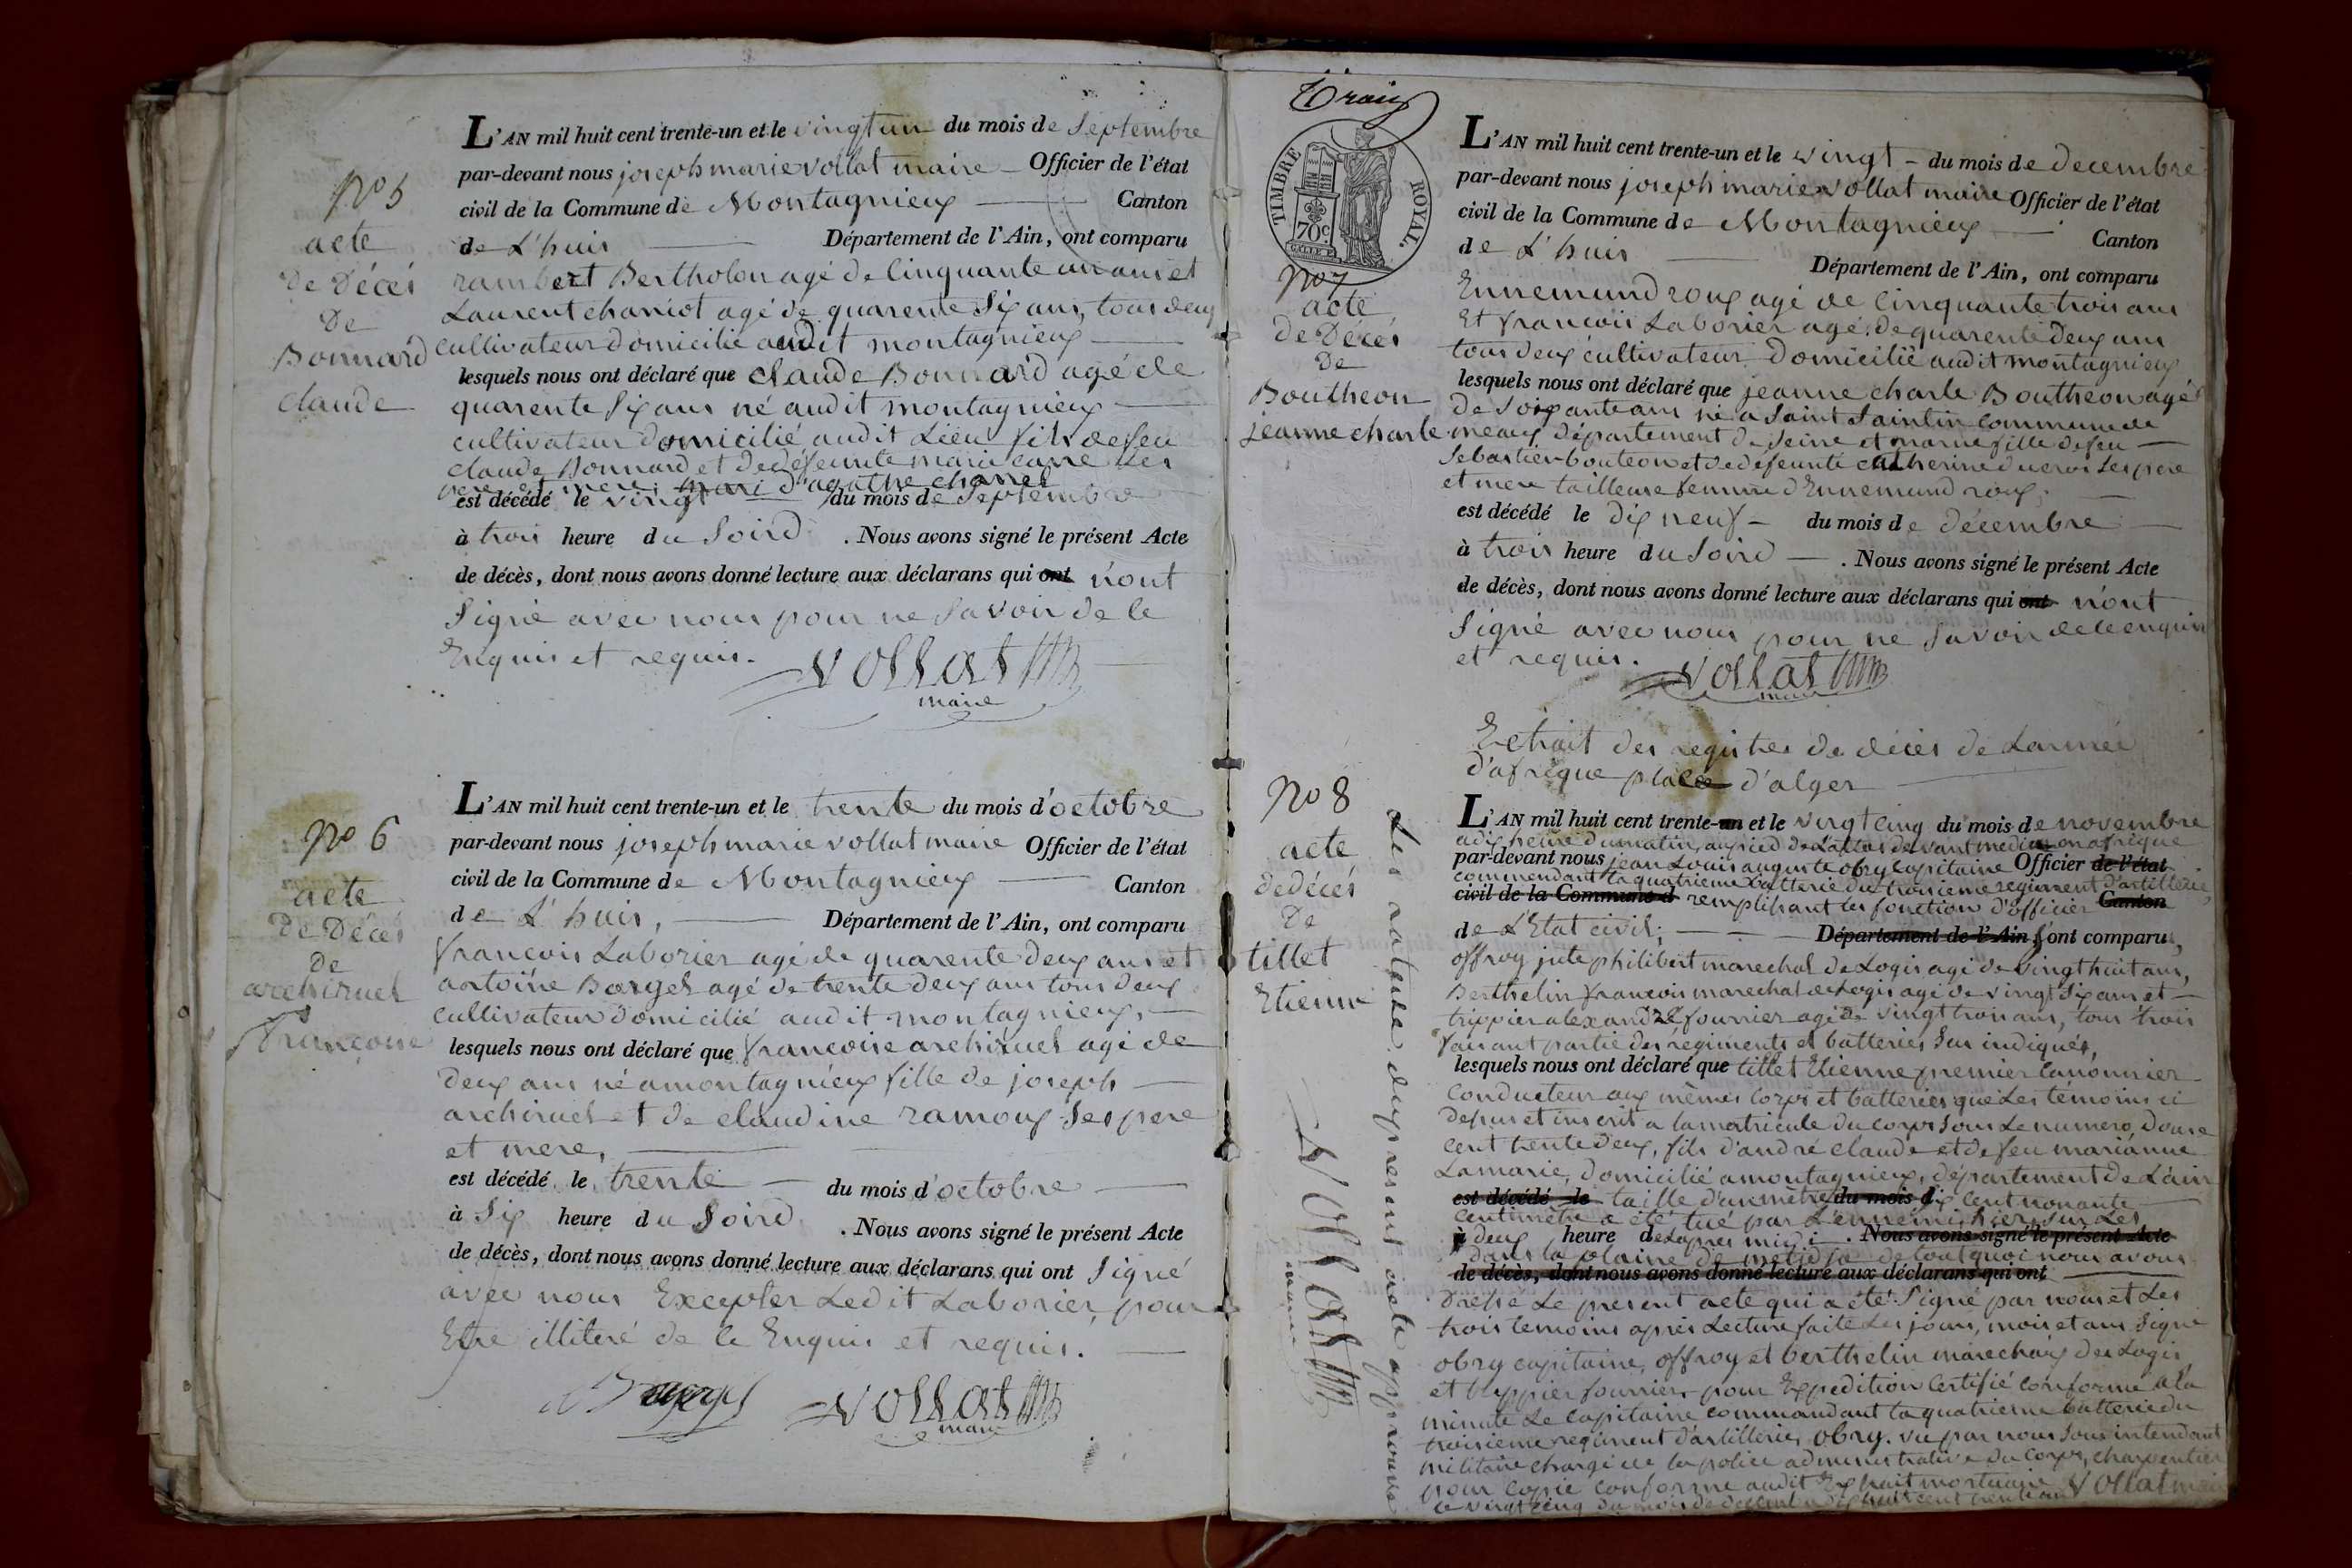 No 5
acte
De Décés
De
Bonnard
claude
L'AN mil huit cent trente-un et le vingt un du mois de Septembre
par-devant nous joseph marie vollat maire Officier de l'état
civil de la Commune de Montagnieux Canton
de L'huis Département de l'Ain, ont comparu
rambert Bertholon agé de Cinquante un ans et
Laurent chaniot agé de quarente Six ans, tous deux
cultivateur domicilié audit montagnieux
lesquels nous ont déclaré que claude Bonnard agé de
quarente Six ans né audit montagnieux
cultivateur domicilié audit Lieu fils de feu
claude Bonnard et de défeunte marie carre Ses
pere et mere, mari d'agathe chanel
est décédé le vingt du mois de Septembre
à trois heure du Soird . Nous avons signé le présent Acte
de décès, dont nous avons donné lecture aux déclarans qui ont n'ont
Signé avec nous pour ne Savoir de le
Enquis et requis.
Vollat
maire
No 6
acte
De Décés
De
archiruel
Françoise
L'AN mil huit cent trente-un et le trente du mois d'octobre
par-devant nous joseph marie vollat maire Officier de l'état
civil de la Commune de Montagnieux Canton
de L'huis, Département de l'Ain, ont comparu
francois Laborier agé de quarente Deux ans et
antoine Borget agé de trente deux ans tous deux
cultivateur domicilié audit montagnieux,
lesquels nous ont déclaré que francoise archiruel agé de
deux ans né a montagnieux fille de joseph
archiruel et de claudine ramoux Ses pere
et mere,
est décédé le trente du mois d'octobre
à Six heure du Soird . Nous avons signé le présent Acte
de décès, dont nous avons donné lecture aux déclarans qui ont Signé
avec nous Excepter Ledit Laborier, pour
Etre illiteré de ce Enquis et requis.
Vollat
maire
TIMBRE ROYAL.
70c.
No 7
acte
de Décés
De
Boutheon
jeanne charle
L'AN mil huit cent trente-un et le vingt du mois de decembre
par-devant nous joseph marie vollat maire Officier de l'état
civil de la Commune de Montagnieux Canton
de L'huis Département de l'Ain, ont comparu
Ennemund roux agé de Cinquante trois ans
Et francois Laborier agé de quarente Deux ans
tous deux cultivateur Domicilié audit montagnieux
lesquels nous ont déclaré que jeanne charle Boutheon agé
de Soixante ans né a Saint Saintin commune de
meaux département de Seine et marne fille de feu
Sebastien bouteon et de défeunte catherine ducros Ses pere
et mere tailleuse femme d'Ennemund roux,
est décédé le dix neuf du mois de décembre
à trois heure du Soird . Nous avons signé le présent Acte
de décès, dont nous avons donné lecture aux déclarans qui ont n'ont
Signé avec nous pour ne Savoir de le enquis
et requis.
Vollat
maire
No 8
acte
de décés
De
tillet
Etienne
Les rature du present acte approuvé
Vollat
maire
Extrait des registres de décès de Larmée
d'afrique place d'alger
L'AN mil huit cent trente-un et le vingt cinq du mois de novembre
a dix heure du matin, au pied de L'atlas devant media en afrique
par-devant nous jean Louis auguste obry Capitaine Officier de l'état
commendant la quatrieme batterie du troisieme regiment d'artillerie
civil de la Commune d remplissant les fonction d'officier Canton
de L'Etat civil; Département de l'Ain, ont comparu,
offroy jute philibert marechal de Logis agé de vingt huit ans,
Berthelin francois marechal de Logis agé de vingt Six ans et
trippier alexandre fourrier agé de vingt trois ans, tous trois
faisant partie des regiments et batteries Sus indiqués,
lesquels nous ont déclaré que tillet Etienne premier Canonnier
Conducteur aux mêmes Corps et batteries que Les témoins ci
dessus et inscrit a la matricule du corps Sous Le numero douse
cent trente deux, fils d'andré claude et de feu marianne
Lamarie, domicilié a montagnieux, département de L'ain
est décédé le taille d'un mètre du mois d six cent nonante
centimètre a été tué par L'ennemi hier, Sur Les
à deux heure de Lapres midi . Nous avons signé le présent Acte
dans la plaine de metidja de tout quoi nous avons
de décès, dont nous avons donné lecture aux déclarans qui ont
dressé Le present acte qui a été Signé par nous et Les
trois temoins après Lecture faite Les jours, mois et ans Signé
obry capitaine, offroy et berthelin marechaux des Logis
et trippier fourrier, pour Expedition Certifié conforme a la
minute Le Capitaine commandant la quatrieme batterie du
troisieme regiment d'artillerie, obry. vu par nous Sous intendant
militaire chargé de la police administrative du Corps, charpentier
pour copie conforme audit Extrait mortuaire Vollat maire